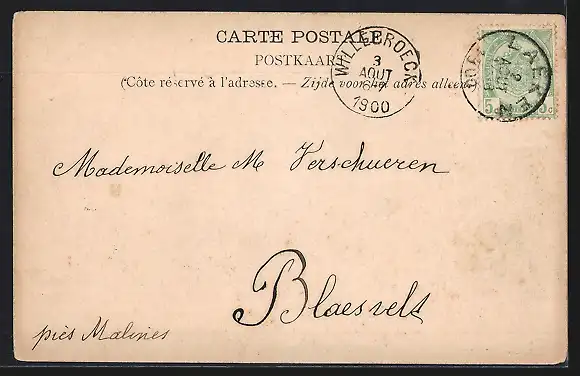 CARTE POSTALE
POSTKAART
(Côte réservé à l'adresse. — Zijde voor het adres alleen
WILLEBROECK
3
AOUT
1900
LAEKEN
2
AOUT
5c 5c
Mademoiselle M Verschueren
Blaesvelt
près Malines